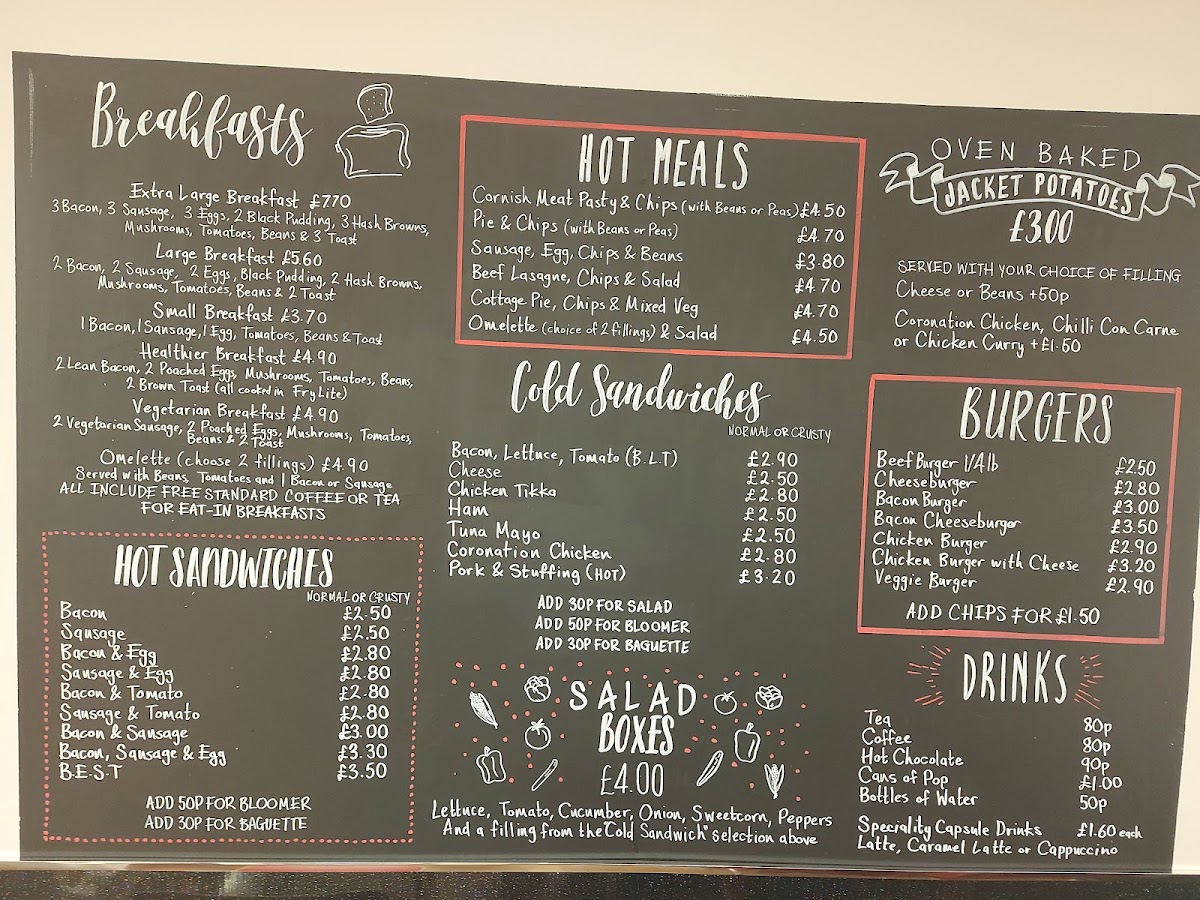 Breakfasts
Extra Large Breakfast £7.70
3 Bacon, 3 Sausage, 3 Eggs, 2 Black Pudding, 3 Hash Browns,
Mushrooms, Tomatoes, Beans & 3 Toast
Large Breakfast £5.60
2 Bacon, 2 Sausage, 2 Eggs, Black Pudding, 2 Hash Browns,
Mushrooms, Tomatoes, Beans & 2 Toast
Small Breakfast £3.70
1 Bacon, 1 Sausage, 1 Egg, Tomatoes, Beans & Toast
Healthier Breakfast £4.90
2 Lean Bacon, 2 Poached Eggs, Mushrooms, Tomatoes, Beans,
2 Brown Toast (all cooked in Fry Lite)
Vegetarian Breakfast £4.90
2 Vegetarian Sausage, 2 Poached Eggs, Mushrooms, Tomatoes,
Beans & 2 Toast
Omelette (choose 2 fillings) £4.90
Served with Beans, Tomatoes and 1 Bacon or Sausage
ALL INCLUDE FREE STANDARD COFFEE OR TEA
FOR EAT-IN BREAKFASTS
HOT SANDWICHES
NORMAL OR CRUSTY
Bacon £2.50
Sausage £2.50
Bacon & Egg £2.80
Sausage & Egg £2.80
Bacon & Tomato £2.80
Sausage & Tomato £2.80
Bacon & Sausage £3.00
Bacon, Sausage & Egg £3.30
B.E.S.T £3.50
ADD 50P FOR BLOOMER
ADD 30P FOR BAGUETTE
HOT MEALS
Cornish Meat Pasty & Chips (with Beans or Peas) £4.50
Pie & Chips (with Beans or Peas) £4.70
Sausage, Egg, Chips & Beans £3.80
Beef Lasagne, Chips & Salad £4.70
Cottage Pie, Chips & Mixed Veg £4.70
Omelette (choice of 2 fillings) & Salad £4.50
Cold Sandwiches
NORMAL OR CRUSTY
Bacon, Lettuce, Tomato (B.L.T) £2.90
Cheese £2.50
Chicken Tikka £2.80
Ham £2.50
Tuna Mayo £2.50
Coronation Chicken £2.80
Pork & Stuffing (HOT) £3.20
ADD 30P FOR SALAD
ADD 50P FOR BLOOMER
ADD 30P FOR BAGUETTE
SALAD
BOXES
£4.00
Lettuce, Tomato, Cucumber, Onion, Sweetcorn, Peppers
And a filling from the "Cold Sandwich" selection above
OVEN BAKED
JACKET POTATOES
£3.00
SERVED WITH YOUR CHOICE OF FILLING
Cheese or Beans +50p
Coronation Chicken, Chilli Con Carne
or Chicken Curry +£1.50
BURGERS
Beef Burger 1/4 lb £2.50
Cheeseburger £2.80
Bacon Burger £3.00
Bacon Cheeseburger £3.50
Chicken Burger £2.90
Chicken Burger with Cheese £3.20
Veggie Burger £2.90
ADD CHIPS FOR £1.50
DRINKS
Tea 80p
Coffee 80p
Hot Chocolate 90p
Cans of Pop £1.00
Bottles of Water 50p
Speciality Capsule Drinks £1.60 each
Latte, Caramel Latte or Cappuccino